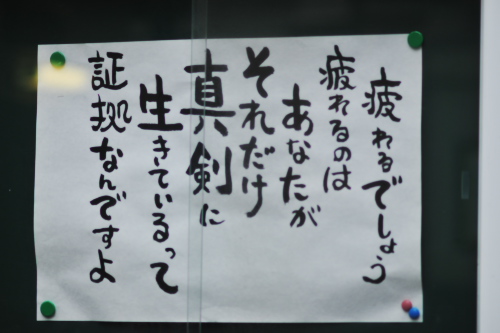 疲れるでしょう
疲れるのは
あなたが
それだけ
真剣に
生きているって
証拠なんですよ